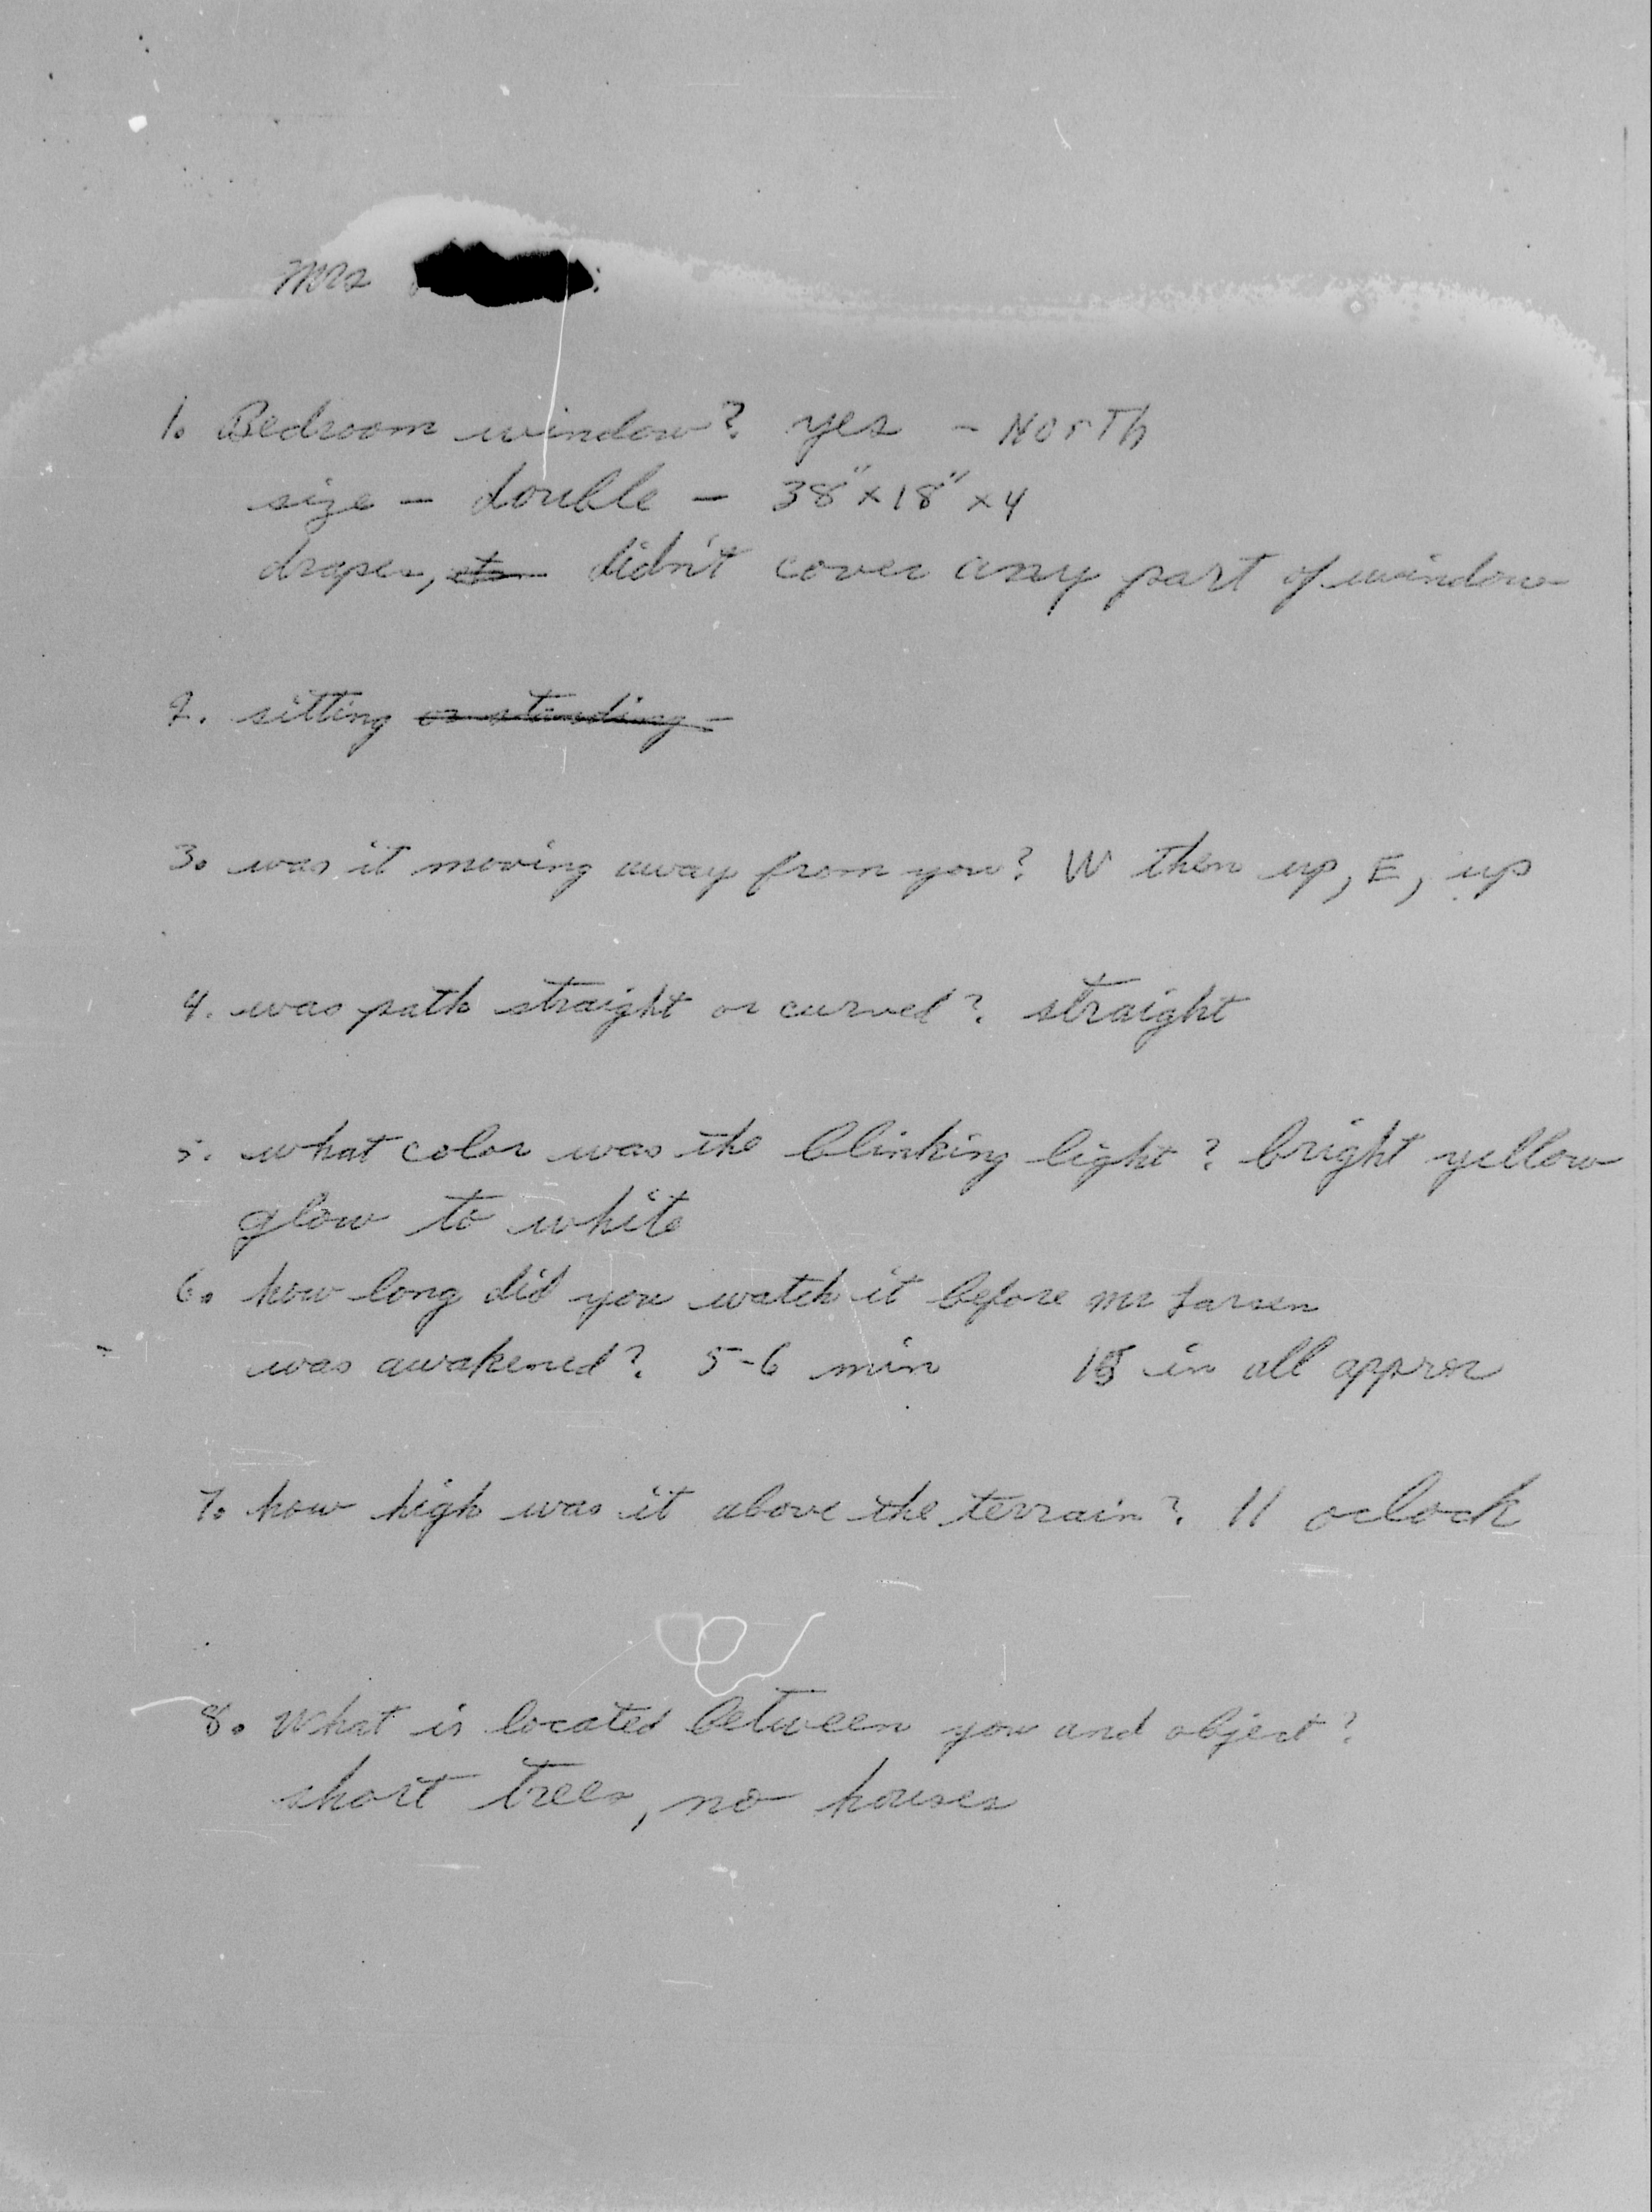 Mrs :
1. Bedroom window? yes - NorTh
size - double - 38"x18" x4
drapes, didn't cover any part of window
2. sitting or standing -
3. was it moving away from you? W then up, E, up
4. was path straight or curved? straight
5. what color was the blinking light? bright yellow
glow to white
6. how long did you watch it before mr Larsen
was awakened? 5-6 min 15 in all approx
7. how high was it above the terrain? 11 oclock
8. What is located between you and object?
short trees, no houses